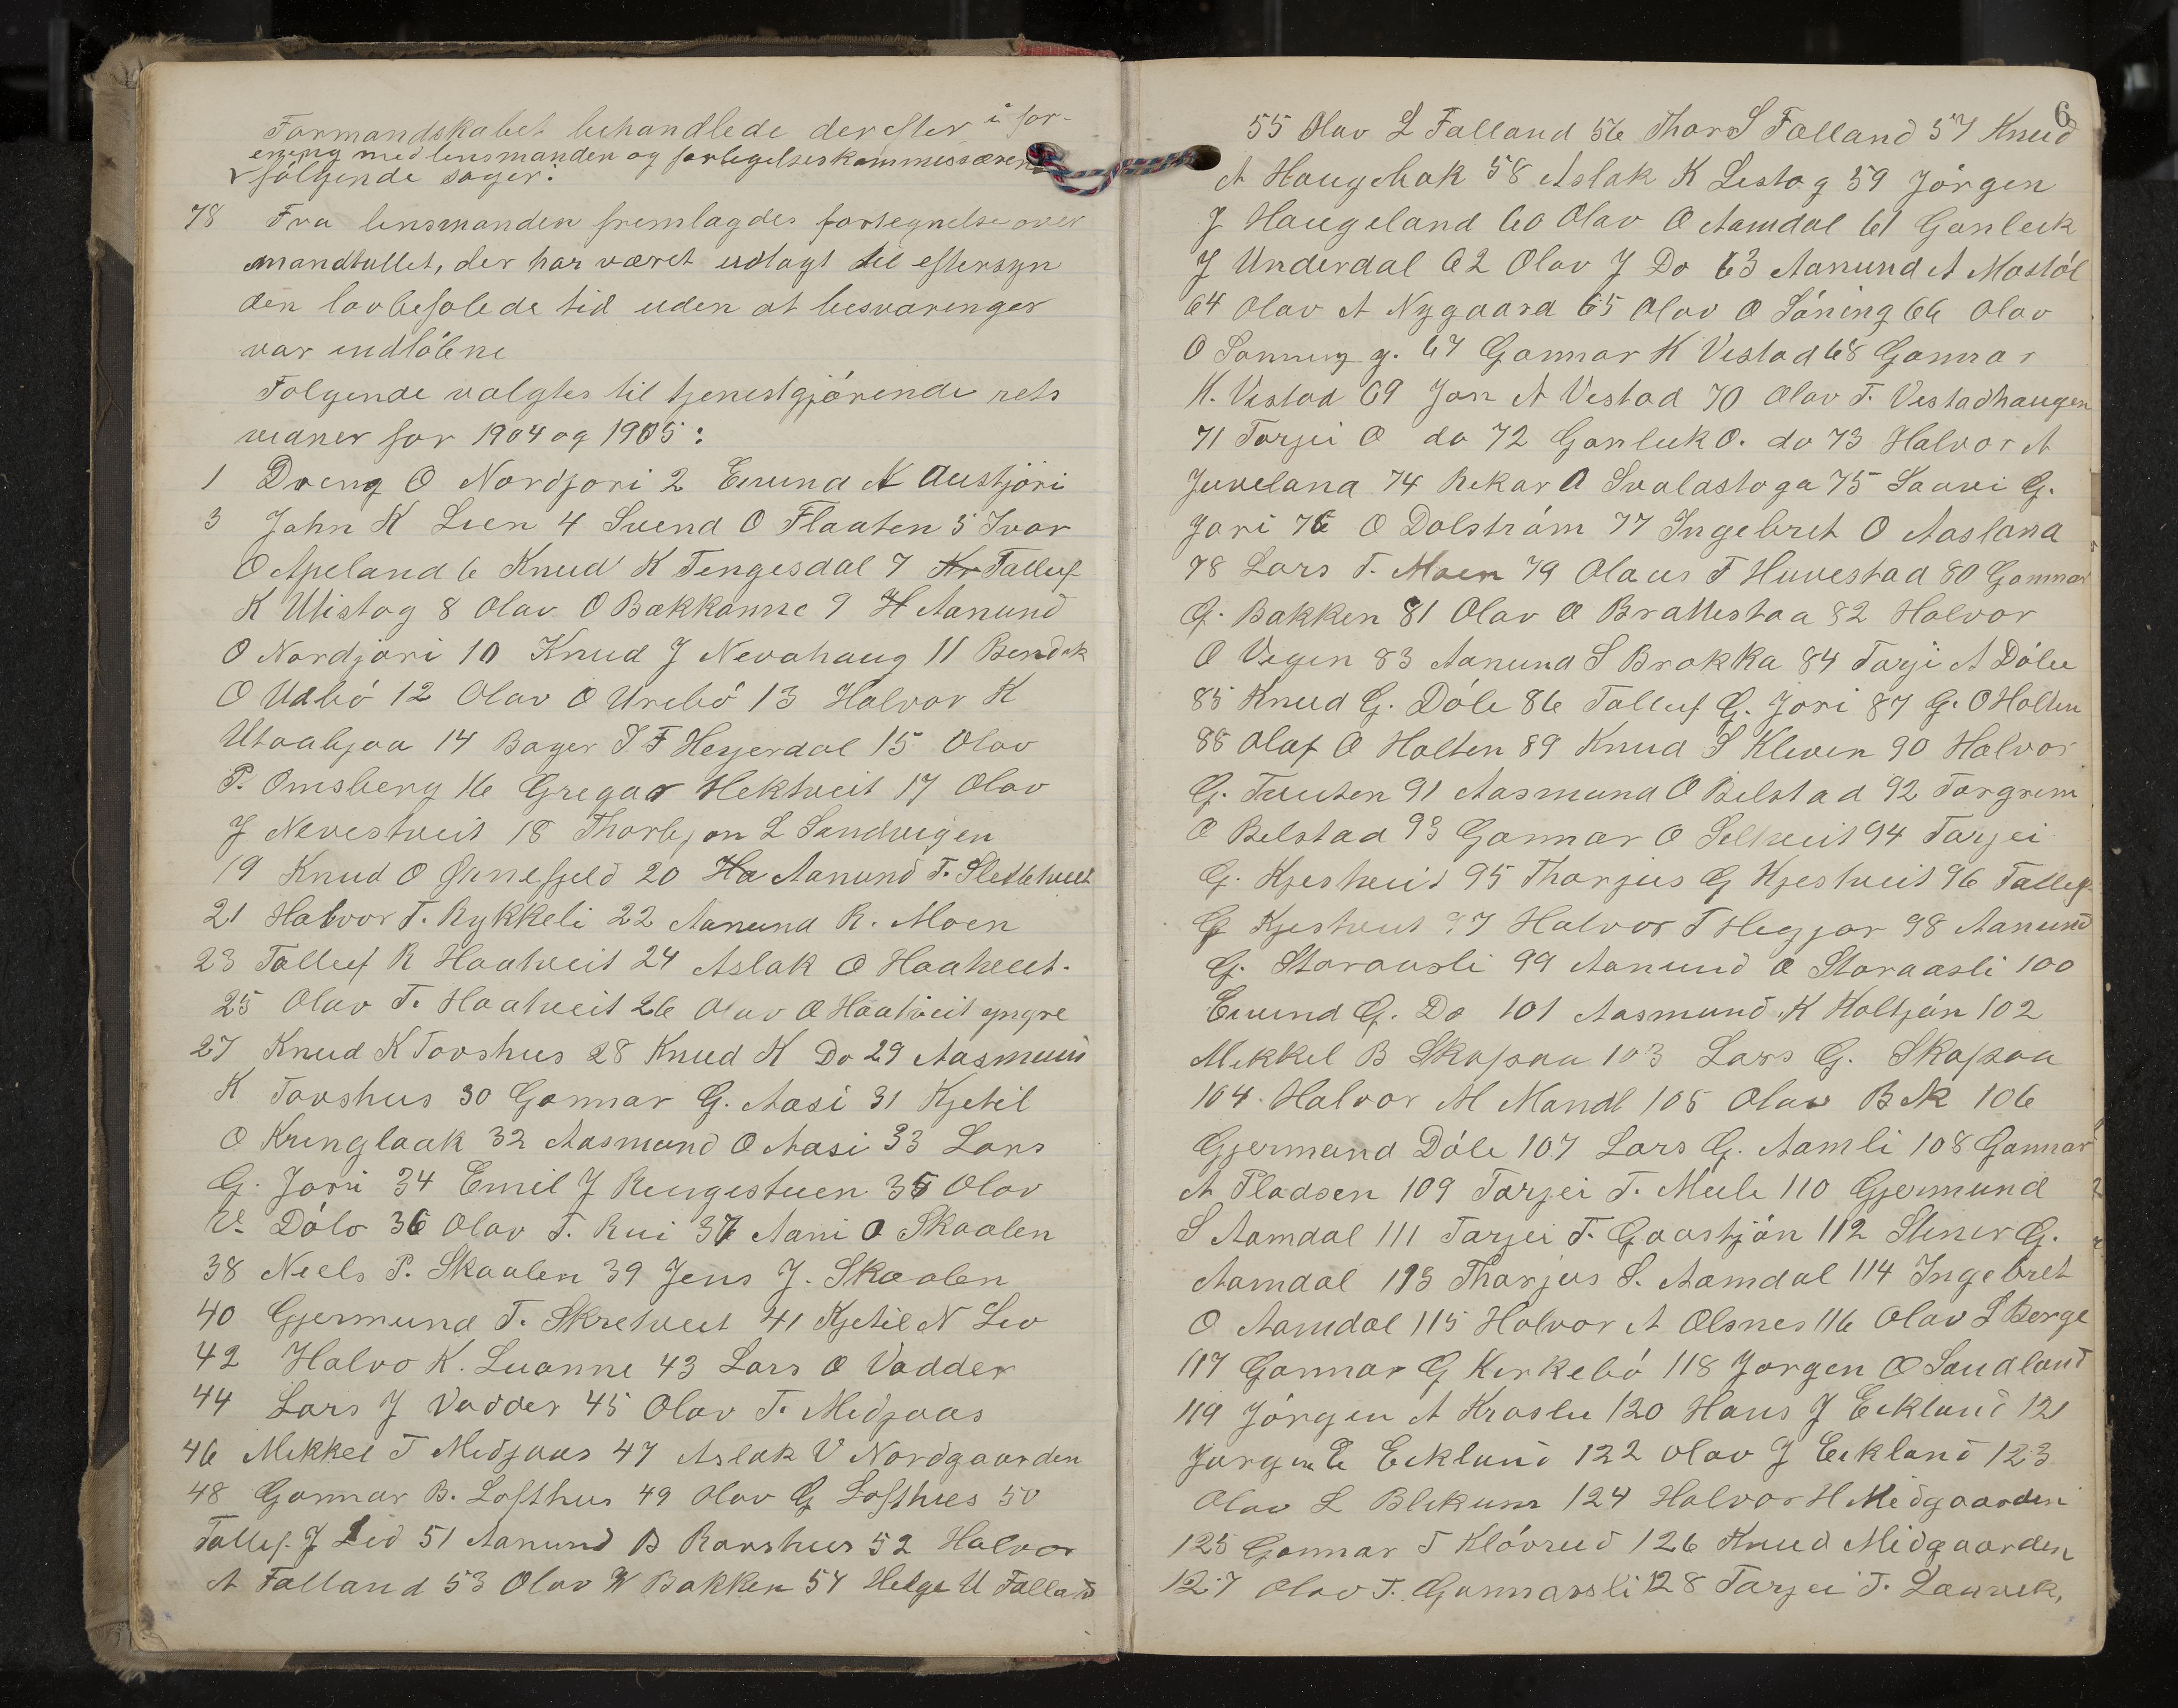 Formandskabet behandlede derefter i for-
ening med lensmanden og forligelseskommissæren
følgende sager:
78 Fra lensmanden fremlagdes fortegnelse over
mandtallet, der har været udlagt til eftersyn
den lovbefalede tid uden at besværinger
var indløbene
Følgende valgtes til tjenestgjørende rets
vidner for 1904 og 1905:
1 Dreng O Nordjori 2 Eivind K Austjóri
3 John K Lien 4 Svend O Flaaten 5 Ivar
O Apeland 6 Knud K Tengesdal 7 Kr Tallef
K Utistog 8 Olav O Bakkanne 9 H Aanund
O Nordjori 10 Knud J Nevahaug 11 Bendik
O Udbó 12 Olav O Urebó 13 Halvor K
Utaabjaa 14 Bager J F Heyerdal 15 Olav
P. Omsberg 16 Gregar Hektveit 17 Olav
J Nevestveit 18 Thorbjøn L Sandvigen
19 Knud O Ørnefjeld 20 Ha Aanund T. Slettetveit
21 Halvor T. Rykkeli 22 Aanund R. Moen
23 Tallef R Haatveit 24 Aslak O Haatveit.
25 Olav T. Haatveit 26 Olav O Haatveit yngre
27 Knud K Tovshus 28 Knud K Do 29 Aasmund
K Tovshus 30 Gonnar G. Aasi 31 Kjetil
O Kringlaak 32 Aasmund O Aasi 33 Lars
G. Jori 34 Emil J Ringestuen 35 Olav
V. Dólo 36 Olav T. Rui 37 Aani O Skaalen
38 Neels P. Skaalen 39 Jens J. Skaalen
40 Gjermund T. Skretveit 41 Kjetil N Liv
42 Halvo K. Luanne 43 Lars O Vadder
44 Lars J Vadder 45 Olav T. Midjaas
46 Mikkel T Midjaas 47 Aslak V Nordgaarden
48 Gonnar B. Lofthus 49 Olav G Lofthus 50
Tallef. J Lid 51 Aanund B Ravshus 52 Halvor
A Falland 53 Olav W Bakken 54 Helge U Falland
6
55 Olav L Falland 56 Thor S Falland 57 Knud
A Haugebak 58 Aslak K Listog 59 Jórgen
J Haugeland 60 Olav O Aamdal 61 Gonleik
J Underdal 62 Olav J Do 63 Aanund A Mostól
64 Olav A Nygaard 65 Olav O Lóning 66 Olav
O Lonning y. 67 Gonnar K Vistad 68 Gonnar
K. Vistad 69 Jon A Vistad 70 Olav T. Vistadhaugen
71 Torjei O do 72 Gonleik O. do 73 Halvor A
Juveland 74 Rekar O Svalastoga 75 Saavi G.
Jori 76 O Dolstróm 77 Ingebret O Aasland
78 Lars T. Moen 79 Olaus T Huvestad 80 Gonnar
G. Bakken 81 Olav O Brattestaa 82 Halvor
O Vegen 83 Aanund S Brokka 84 Tarje A Dóle
85 Knud G. Dóle 86 Tallef G. Jori 87 G. O Holten
88 Olaf O Holten 89 Knud S Kleven 90 Halvor
G. Tveiten 91 Aasmund O Bilstad 92 Torgrim
O Bilstad 93 Gonnar O Seltveit 94 Tarjei
G. Kjestveit 95 Tharjus G Kjestveit 96 Tallef
G Kjestveit 97 Halvor T Hegjar 98 Aanund
G. Storaasli 99 Aanund O Storaasli 100
Eivind G. Do 101 Aasmund K Holtján 102
Mikkel B Skafsaa 103 Lars G. Skafsaa
104. Halvor M Nandl 105 Olav B Bk 106
Gjermund Dóle 107 Lars G. Aamli 108 Gonnar
A Pladsen 109 Tarjei T. Meeli 110 Gjermund
S Aamdal 111 Tarjei T. Gaastján 112 Steinr G.
Aamdal 113 Tharjus S. Aamdal 114 Ingebret
O Aamdal 115 Halvor A Olsnes 116 Olav S Berge
117 Gonnar G Kirkebó 118 Jorgen O Saudland
119 Jórgen A Kraslie 120 Hans J Eikland 121
Jurgen E Eikland 122 Olav J Eikland 123
Olav L Blikum 124 Halvor H Midgaarden
125 Gonnar T Klóvrud 126 Knud Midgaarden
127 Olav T. Gunnarsli 128 Tarjei T. Laurik,